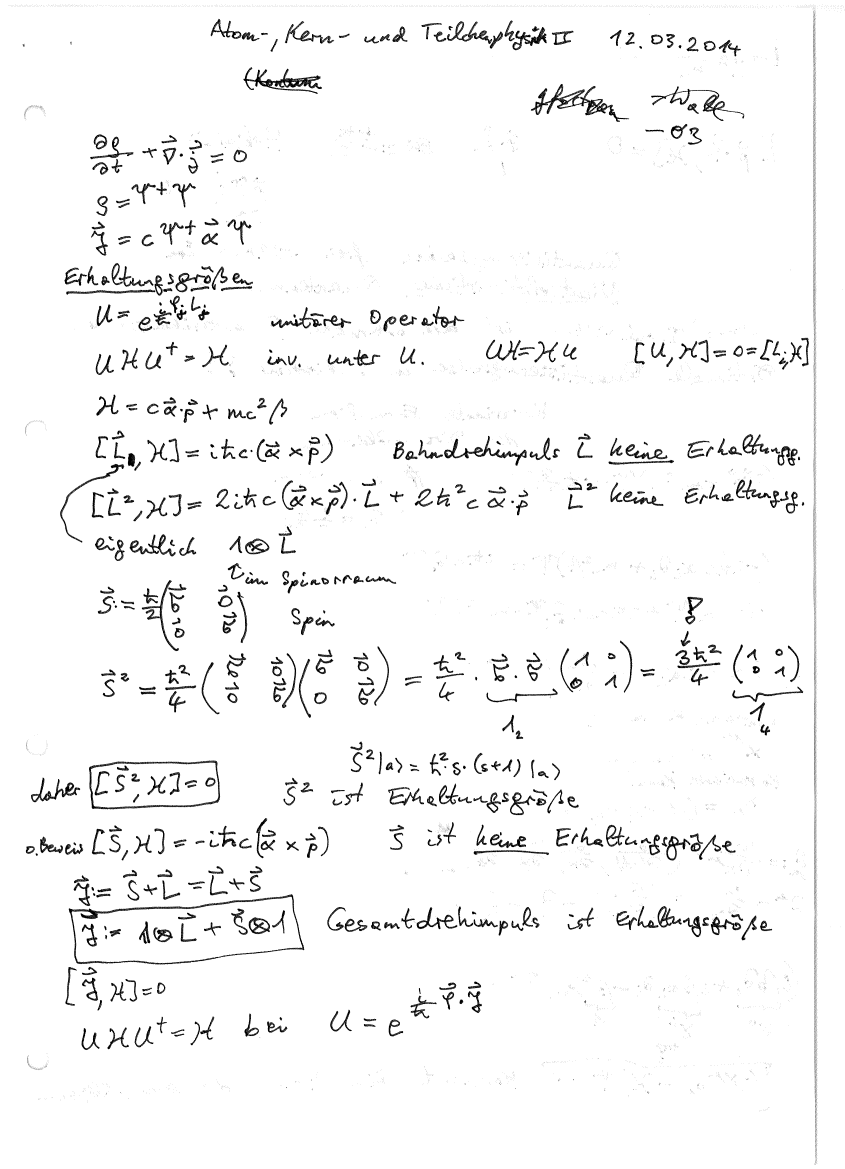 Atom-, Kern- und Teilchenphysik II 12.03.2014
-03
∂ρ/∂t + ∇⃗·j⃗ = 0
ρ = Ψ⁺Ψ
j⃗ = c Ψ⁺ α⃗ Ψ
Erhaltungsgrößen
U = e^{i/ħ φ_j L_j} unitärer Operator
U H U⁺ = H inv. unter U. UH = H U [U, H] = 0 = [L_j, H]
H = c α⃗·p⃗ + mc² β
[L⃗, H] = iħc·(α⃗ × p⃗) Bahndrehimpuls L⃗ keine Erhaltungsg.
[L⃗², H] = 2iħc (α⃗ × p⃗)·L⃗ + 2ħ² c α⃗·p⃗ L⃗² keine Erhaltungsg.
eigentlich 1⊗L⃗
↑ im Spinorraum
S⃗ = ħ/2 (σ⃗ 0⃗; 0⃗ σ⃗) Spin
S⃗² = ħ²/4 (σ⃗ 0⃗; 0⃗ σ⃗)(σ⃗ 0⃗; 0 σ⃗) = ħ²/4 · σ⃗·σ⃗ (1 0; 0 1) = 3ħ²/4 (1 0; 0 1)
1₂ 1₄
S⃗²|a⟩ = ħ²·s·(s+1)|a⟩
daher [S⃗², H] = 0 S⃗² ist Erhaltungsgröße
o. Beweis [S⃗, H] = -iħc(α⃗ × p⃗) S⃗ ist keine Erhaltungsgröße
J⃗ := S⃗ + L⃗ = L⃗ + S⃗
J⃗ := 1⊗L⃗ + S⃗⊗1 Gesamtdrehimpuls ist Erhaltungsgröße
[J⃗, H] = 0
U H U⁺ = H bei U = e^{i/ħ φ⃗·J⃗}